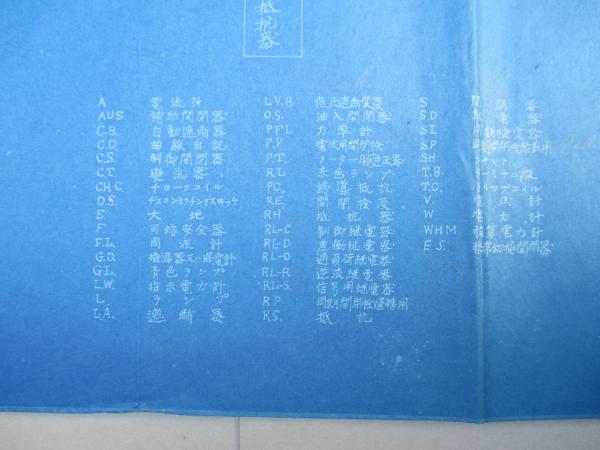 抵抗器
A 電流計
AUS 補助開閉器
C.B. 自動遮断器
C.D 曲線自記
C.S. 制御開閉器
C.T. 變流器
CH.C. チョークコイル
D.S. ヂスコン子クチングスヰッチ
E 大地
F 可熔安全器
F.L. 周波計
G.D. 検漏器又ハ接電計
G.L. 青色ランプ
I.W. 指示電力計
L. ランプ
L.A. 遮断器
L.V.B 低圧遮断装置
O.S. 油入開閉器
P.F.I. 力率計
P.P. 電圧用開閉栓
P.T. 変圧器
R.L 赤色ランプ
PC. 誘導抵抗
RE. 開閉栓
RH 抵抗器
RL-C 制御継電器
RL-D 継電器
RL-O 過負荷継電器
RL-R 逆流継電器
RL-S. 信号用継電器
R.P 同期開閉栓運轉用
RS. 抵抗
S 開閉器
S.D. 放電器
S.I. 同期検定器
S.P 同期開閉栓起動用
SH. シャント
T.B. ターミナル盤
T.C. トリップコイル
V. 電圧計
W 電力計
WHM 積算電力計
E.S. 非常切換開閉器